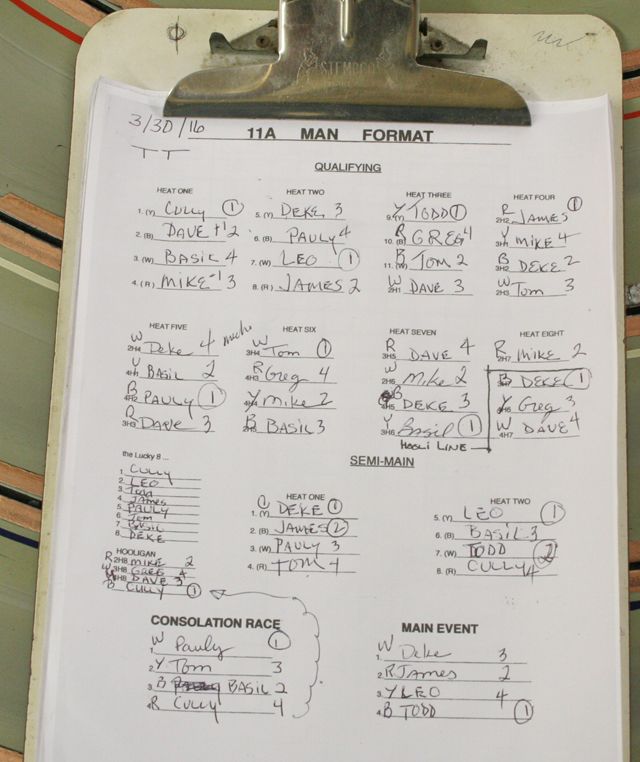 STEMPCO
3/30/16
TT
11A MAN FORMAT
QUALIFYING
HEAT ONE
1. (Y) CULLY 1
2. (B) DAVE +1 2
3. (W) BASIL 4
4. (R) MIKE -1 3
HEAT TWO
5. (Y) DEKE 3
6. (B) PAULY 4
7. (W) LEO 1
8. (R) JAMES 2
HEAT THREE
9. (Y) Y TODD 1
10. (B) R GREG 4
11. (W) B TOM 2
2H1 W DAVE 3
HEAT FOUR
2H2 R JAMES 1
3H1 Y MIKE 4
3H2 B DEKE 2
2H3 W TOM 3
HEAT FIVE
2H4 W Deke 4 much
4H1 Y BASIL 2
4H2 B PAULY 1
3H3 R DAVE 3
HEAT SIX
3H4 W Tom 1
4H3 R Greg 4
4H4 Y MIKE 2
B BASIL 3
HEAT SEVEN
3H5 R DAVE 4
2H6 W MIKE 2
4H5 B DEKE 3
3H6 Y BASIL 1
HOGLI LINE
HEAT EIGHT
2H7 R MIKE 2
B DEKE 1
Y Greg 3
4H7 W DAVE 4
the Lucky 8 ...
1. CULLY
2. LEO
3. TODD
4. JAMES
5. PAULY
6. TOM
7. BASIL
8. DEKE
HOOLIGAN
R 2H8 MIKE 2
3H8 GREG 4
4H8 DAVE 3
B CULLY 1
SEMI-MAIN
HEAT ONE
1. (Y) DEKE 1
2. (B) JAMES 2
3. (W) PAULY 3
4. (R) TOM 4
HEAT TWO
5. (Y) LEO 1
6. (B) BASIL 3
7. (W) TODD 2
8. (R) CULLY 4
CONSOLATION RACE
1. W Pauly 1
2. Y TOM 3
3. B BASIL 2
4. R CULLY 4
MAIN EVENT
1. W Deke 3
2. R JAMES 2
3. Y LEO 4
4. B TODD 1